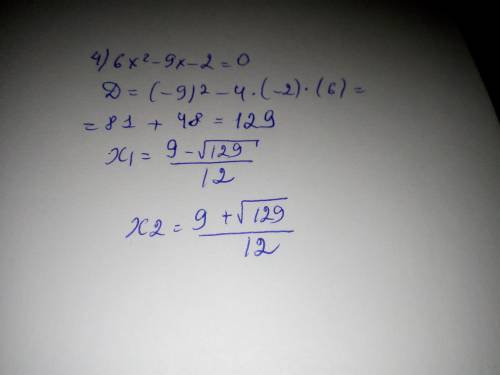 4) 6x² - 9x - 2 = 0
D = (-9)² - 4 · (-2) · (6) =
= 81 + 48 = 129
x₁ = (9 - √129) / 12
x2 = (9 + √129) / 12